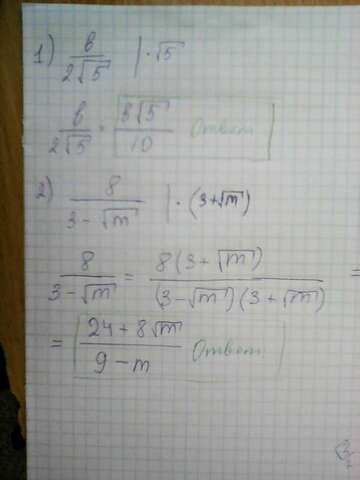 1) в/(2√5) | · √5
в/(2√5) = в√5/10 Ответ
2) 8/(3-√m) | · (3+√m)
8/(3-√m) = 8(3+√m)/((3-√m)(3+√m)) =
= (24+8√m)/(9-m) Ответ